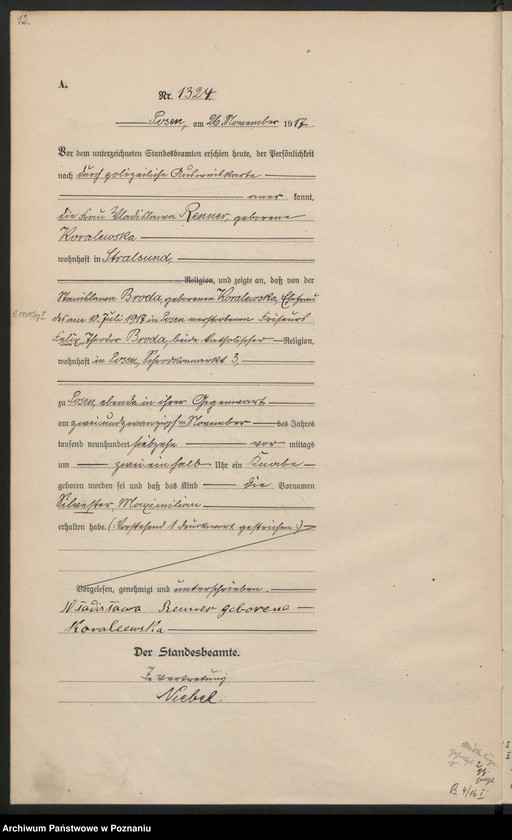 12.
A.
Nr. 1324.
Posen, am 26. November 1917.
Vor dem unterzeichneten Standesbeamten erschien heute, der Persönlichkeit
nach durch polizeiliche Ausweiskarte
aner kannt,
die Frau Wladislawa Renner, geborene
Koralewska
wohnhaft in Stralsund,
Religion, und zeigte an, daß von der
Stanislawa Broda, geborenen Koralewska, Ehefrau
des am 10. Juli 1917 in Posen verstorbenen Friseurs
Felix Theodor Broda, beide katholischer Religion,
wohnhaft in Posen, Schrodkamarkt 3,
zu Posen, ebenda in ihrer Gegenwart
am zweiundzwanzigsten November des Jahrs
tausend neunhundert siebzehn vor mittags
um zweieinhalb Uhr ein Knabe
geboren worden sei und daß das Kind die Vornamen
Silvester, Maximilian
erhalten habe. (: Vorstehend 1 Druckwort gestrichen :)
Vorgelesen, genehmigt und unterschrieben.
Władisława Renner geborene
Koraleewska
Der Standesbeamte.
In Vertretung
Niebel.
B. 4/16 I
Archiwum Państwowe w Poznaniu